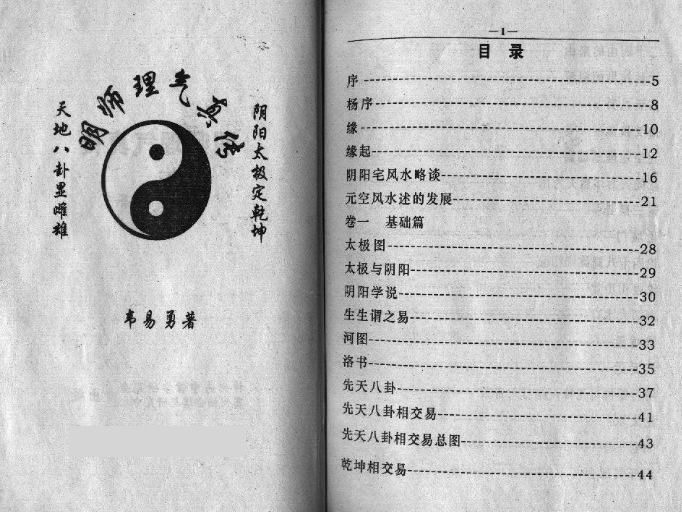 明师理气真传
阴阳太极定乾坤
天地八卦显雌雄
韦易勇著
—1—
目 录
序 5
杨序 8
缘 10
缘起 12
阴阳宅风水略谈 16
元空风水述的发展 21
卷一 基础篇
太极图 28
太极与阴阳 29
阴阳学说 30
生生谓之易 32
河图 33
洛书 35
先天八卦 37
先天八卦相交易 41
先天八卦相交易总图 43
乾坤相交易 44